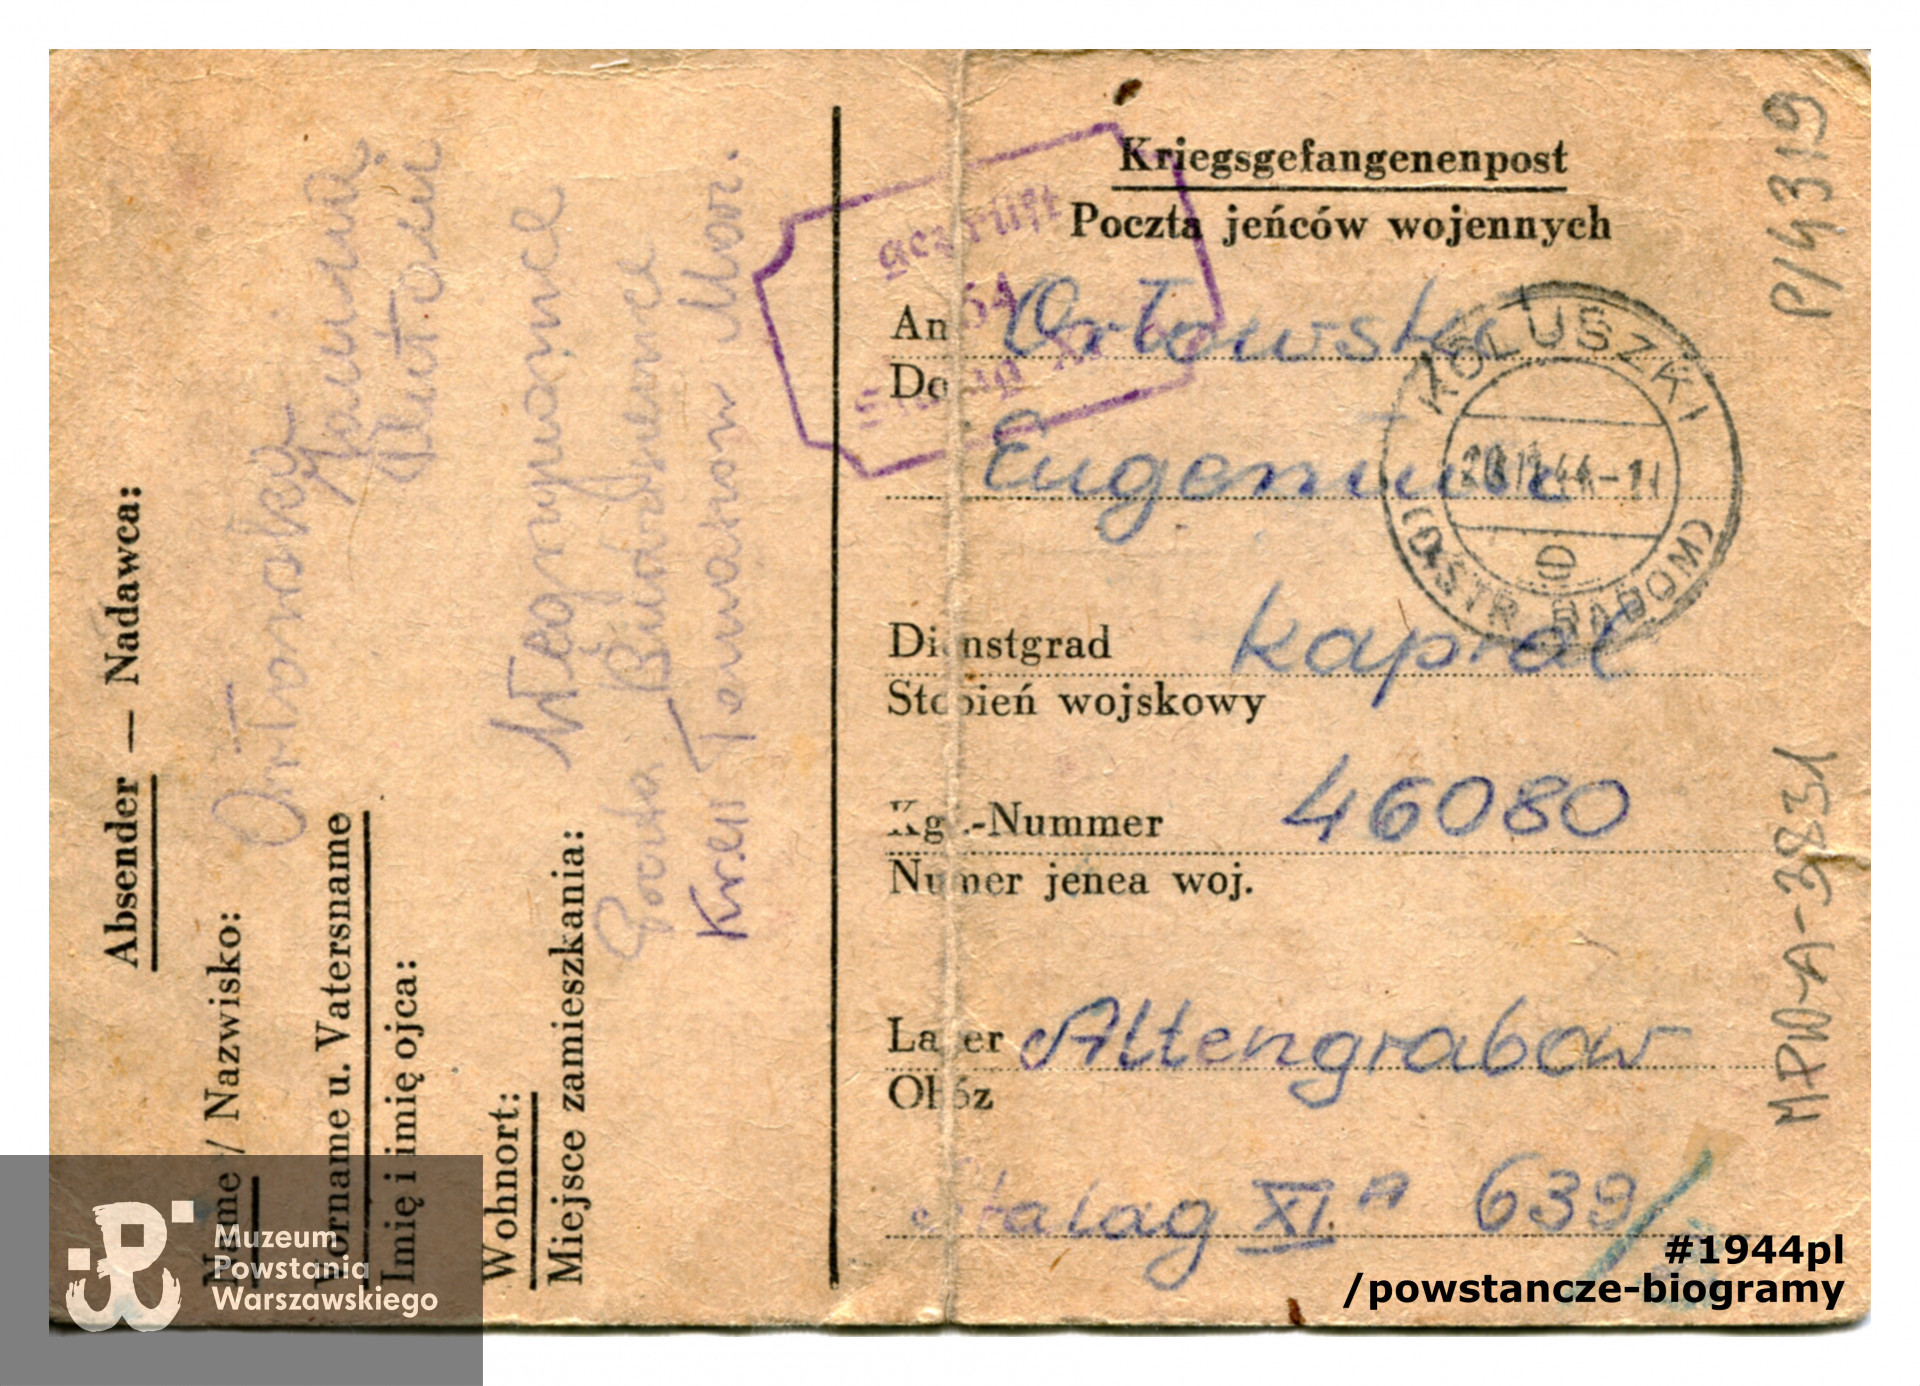 Absender — Nadawca:
Name / Nazwisko: Orłowska
Vorname u. Vatersname Janina
Imię i imię ojca:
Wohnort: Węgrzynowice
Miejsce zamieszkania:
Poczta Budziszewice
Kreis Tomaszow Maz.
Kriegsgefangenenpost
Poczta jeńców wojennych
geprüft
54
Stalag XI A
An Orłowski
Do
Eugeniusz
KOLUSZKI
44-11
(DISTR. RADOM)
e
Dienstgrad kapral
Stopień wojskowy
Kgf.-Nummer 46080
Numer jenea woj.
Lager Altengrabow
Obóz
Stalag XI A 639/
P/4319
MPW-A-3831
Muzeum
Powstania
Warszawskiego
#1944pl
/powstancze-biogramy